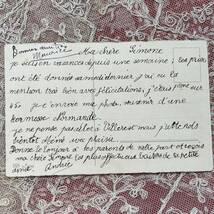 Ma chère Simone
je suis en vacances depuis une semaine ; les prix
ont été donnés samedi dernier j'ai eu la
mention très bien avec félicitations, j'étais sur
45. je t'envoie ma photo, souvenir d'une
kermesse Normande.
je ne pense pas aller à Villerest mais j'ai
bientôt
Donne le bonjour à tes parents de notre part et reçois
ma chère Simone les plus affectueux baisers de ta petite
amie. Andrée